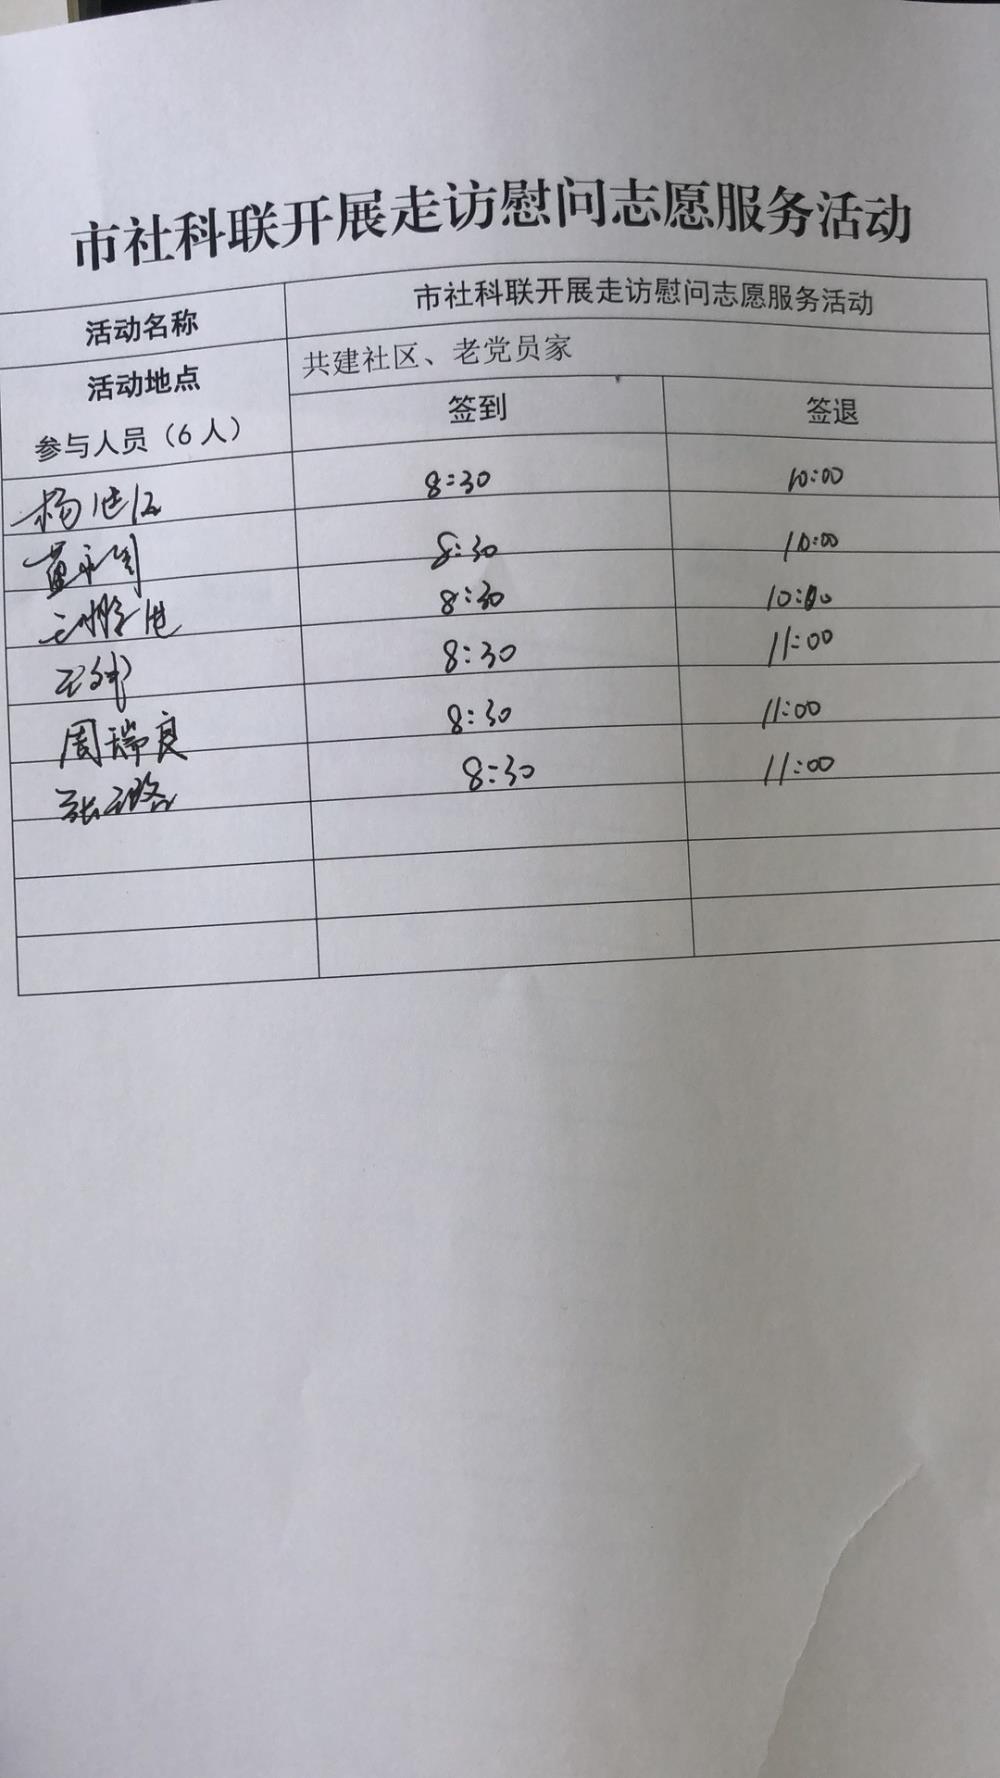 市社科联开展走访慰问志愿服务活动
活动名称 市社科联开展走访慰问志愿服务活动
活动地点 共建社区、老党员家
参与人员（6人） 签到 签退
杨 8:30 10:00
8:30 10:00
8:30 10:00
8:30 11:00
周瑞良 8:30 11:00
张 8:30 11:00